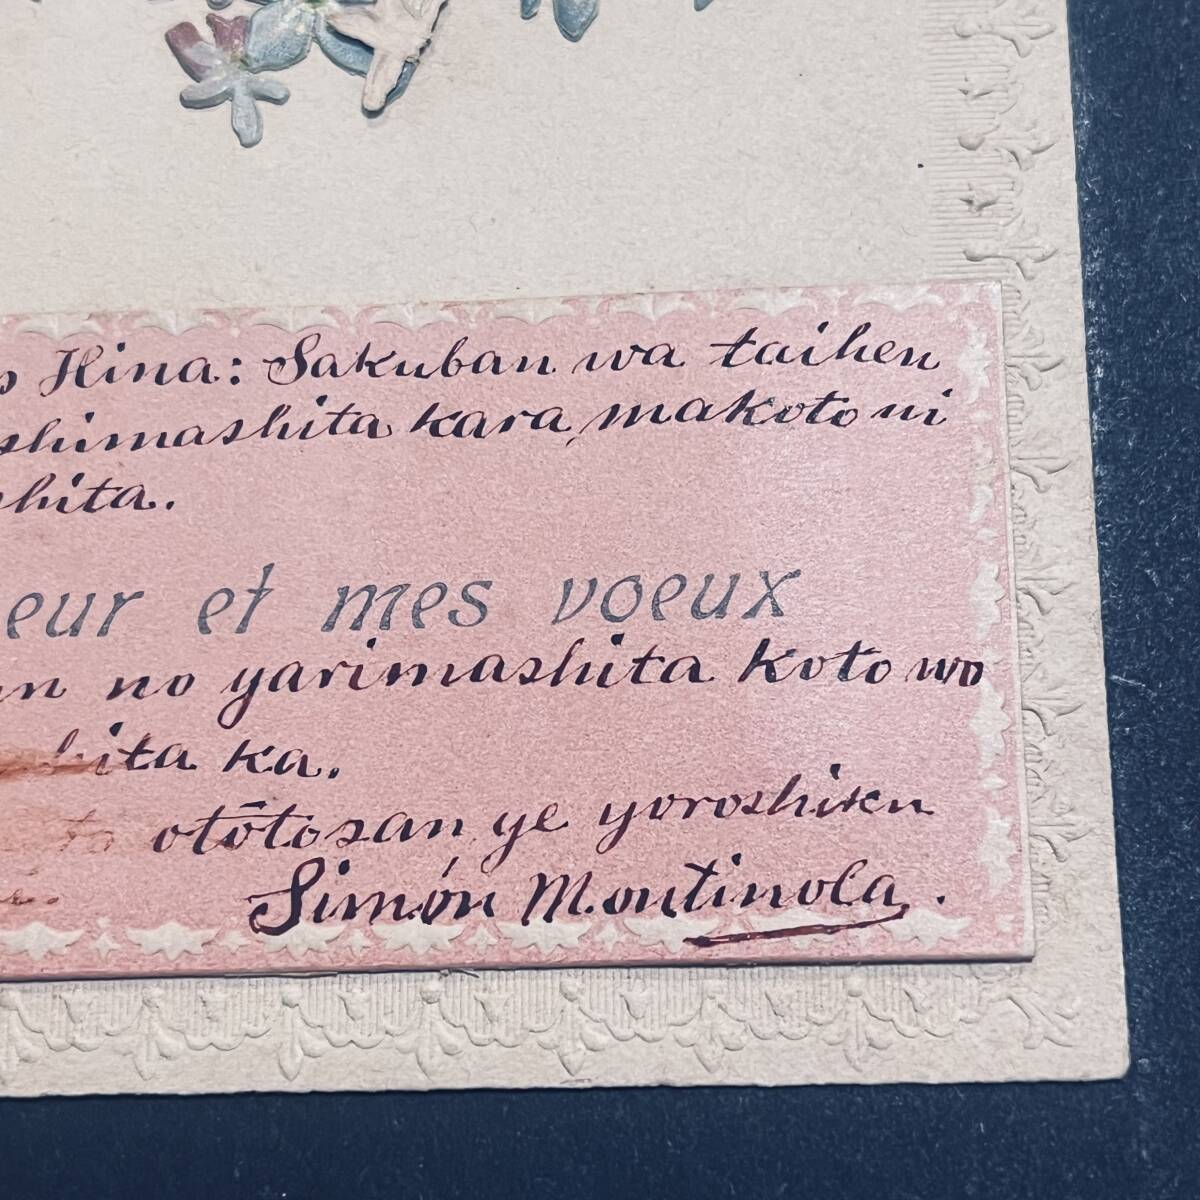 Hina: Sakuban wa taihen
shimashita kara, makoto ni
shita.
eur et mes voeux
no yarimashita koto wo
shita ka.
otōtosan ye yoroshiku
Simón Montinola.